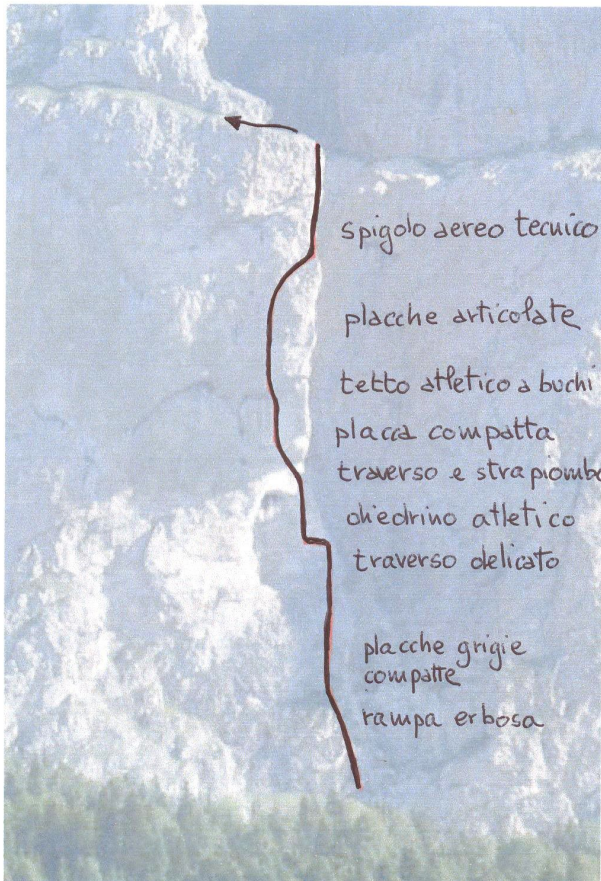 spigolo aereo tecnico
placche articolate
tetto atletico a buchi
placca compatta
traverso e strapiombo
diedrino atletico
traverso delicato
placche grigie
compatte
rampa erbosa